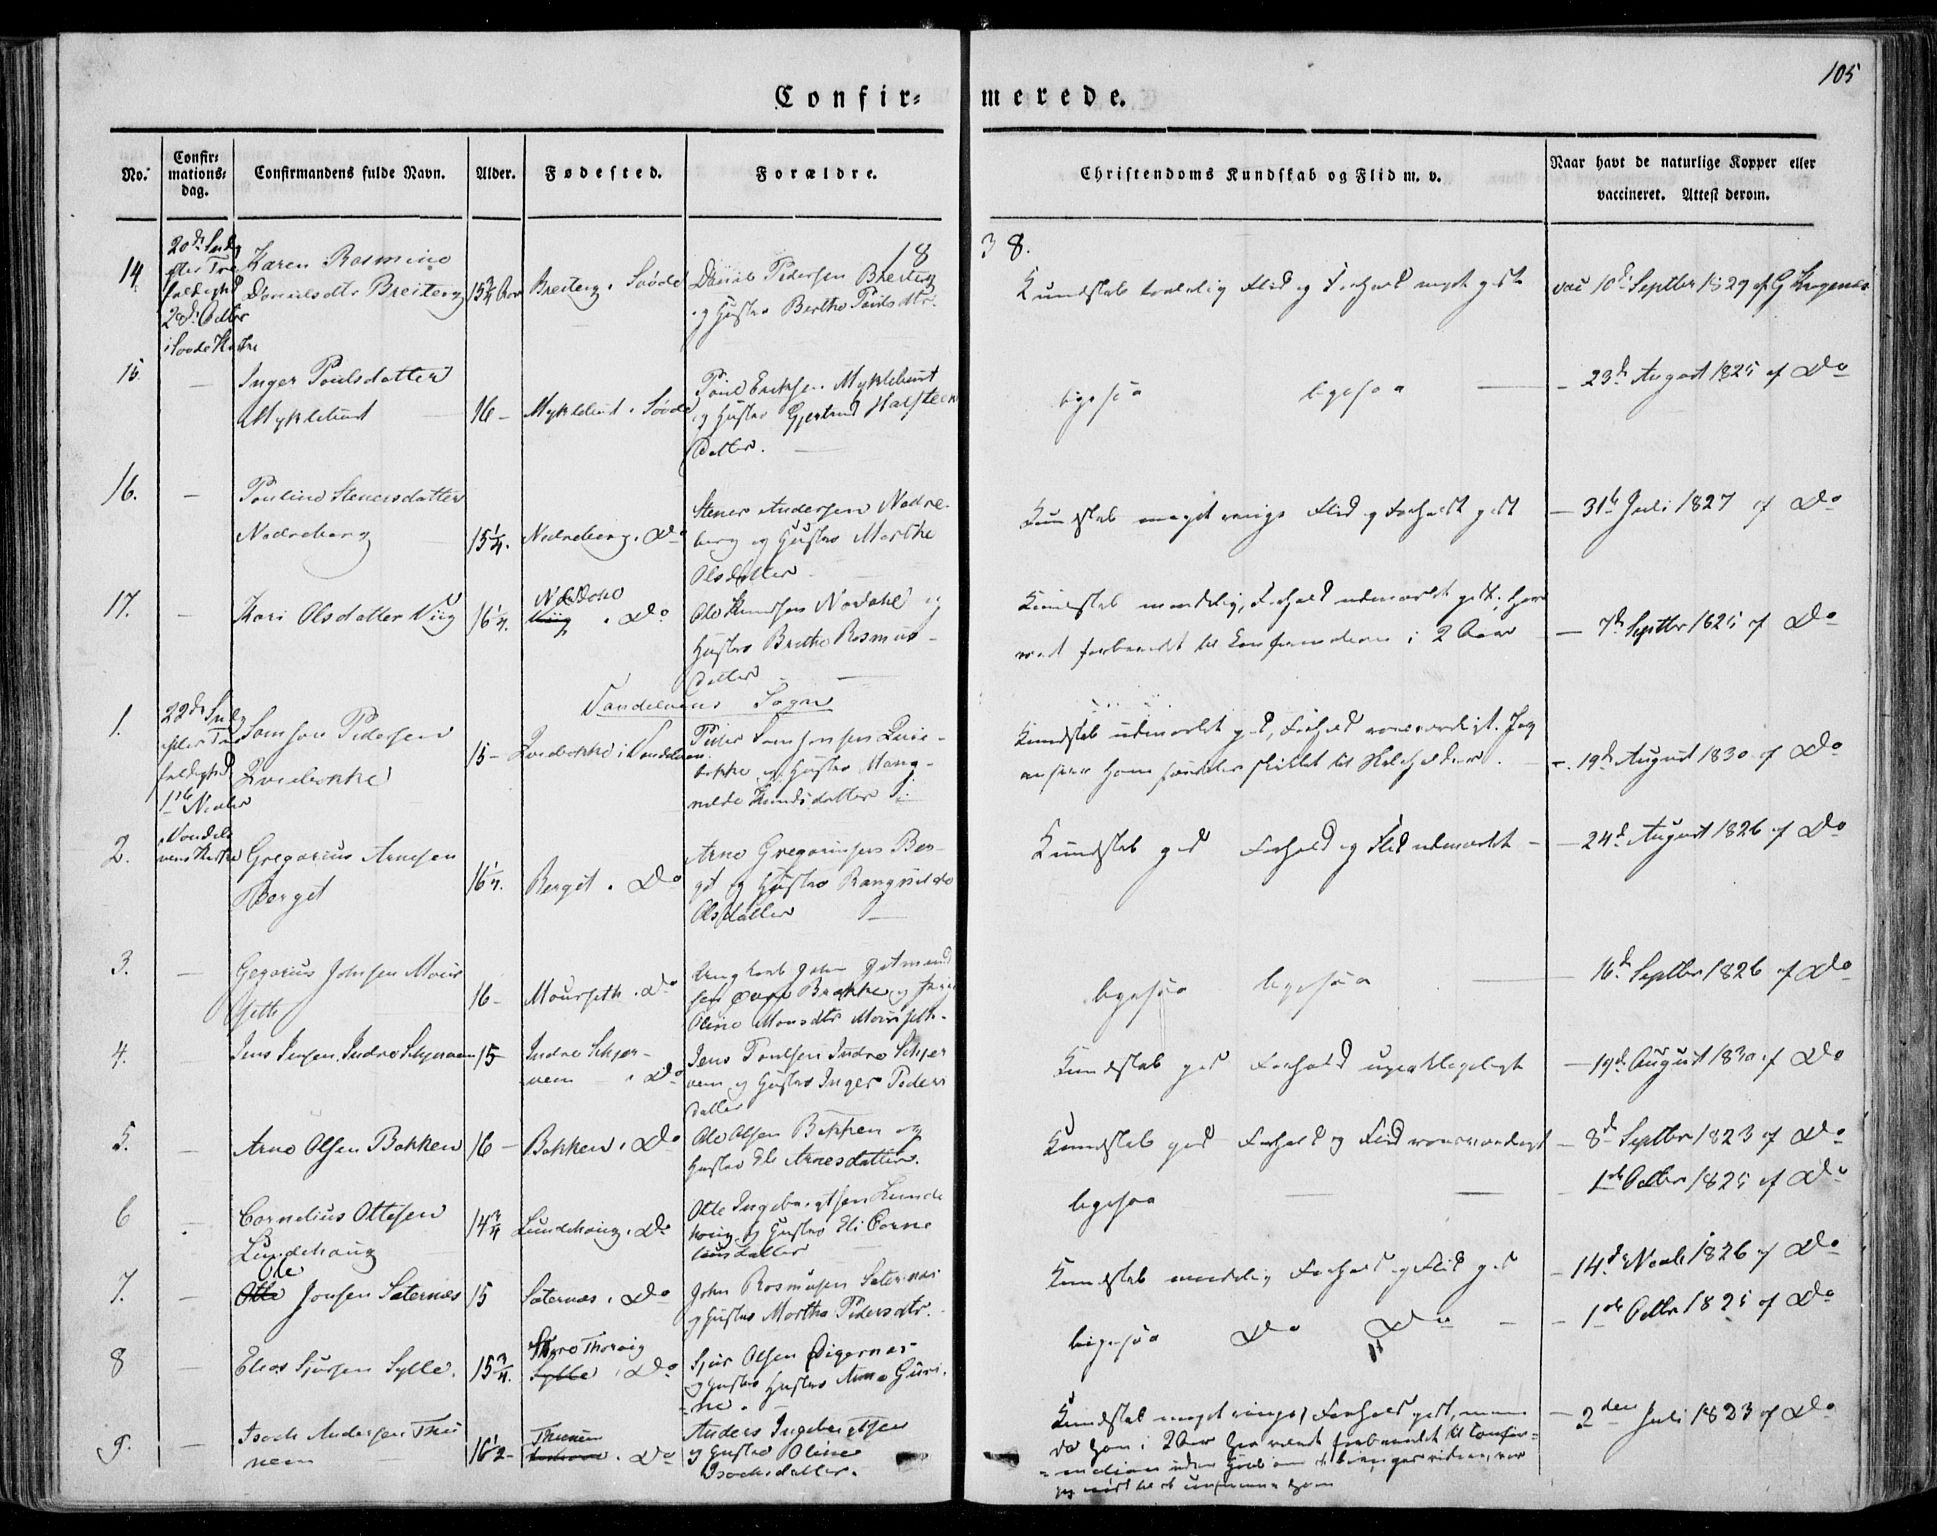 105
Confir= merede.
No.
Confir=
mations=
dag.
Confirmandens fulde Navn.
Alder.
Fødested.
Forældre.
Christendoms Kundskab og Flid m. v.
Naar havt de naturlige Kopper eller
vaccineret. Attest derom.
18 38.
14
20de
efter Tre
foldighed
28de Octbr
i Søvde Kirke
Karen Rasmine
Danielsdtr Breiteig
15 3/4 Aar
Breiteig i Søvde
Daniel Pedersen Breiteig
og Hustro Berthe Poulsdtr.
Kundskab taalelig Flid og Forhold meget godt
vac 10de Septbr 1829 af G Krogenæs
15.
—
Inger Poulsdatter
Myklebust
16 —
Myklebust i Søvde
Poul Eriksen Myklebust
og Hustro Gjertrud Halsteen
Datter.
ligesaa ligesaa —
— 23de August 1825 af Do
16.
—
Pauline Stenersdatter
Nedreberg
15 1/4.
Nedreberg i Do
Stener Andersen Nedre-
berg og Hustro Marthe
Olsdatter
Kundskab meget ringe Flid og Forhold godt
— 31te Juli 1827 af Do
17.
—
Kari Olsdatter Viig
16 1/4.
Nordahl
Viig i Do
Ole Knudsen Nordahl og
Hustro Brithe Rasmus-
datter
Kundskab maadelig, Forhold udmærket godt, har
været forberedt til Confirmationen i 2 Aar
— 7de Septbr 1825 af Do
Vandelvens Sogn
1.
22de
efter Tre
foldighed
1ste Novbr
Vandel
vens Kirke
Samson Pedersen
15 —
i Vandelven
Peder Samsonsen
og Hustro Mang-
nilde Knudsdatter
Kundskab udmærket god, Forhold roesværdigt. Jeg
anseer ham særdeles skikket til Skoleholder.
— 19de August 1830 af Do
2.
Gregorius Arnesen
Berget
16 1/4.
Berget i Do
Arne Gregoriusen Ber-
get og Hustro Rangnilde
Olsdatter
Kundskab god Forhold og Flid udmærket —
— 24de August 1826 af Do
3.
—
Gegorius Johnsen Mour
sette
16 —
Mourseth i Do
Ungkarl John
Brække og Pige
Oline Monsdtr Mourseth.
ligesaa ligesaa —
16de Septbr 1826 af Do
4.
—
Jens Jensen Indre Schjerven
15
Indre Schjer-
vem i Do
Jens Poulsen Indre Schjer
vem og Hustro Inger Peders
datter
Kundskab god Forhold upaaklageligt
— 19de August 1830 af Do
5.
—
Arne Olsen Bakken
16 —
Bakken i Do
Ole Olsen Bakken og
Hustro Eli Arnesdatter.
Kundskab god Forhold og Flid roesværdigt
— 8de Septbr 1823 af Do
6
—
Cornelius Ottesen
Lundehaug
14 3/4
Lundehaug i Do
Otte Ingebrigtsen Lunde
haug og Hustro Eli Corne
liusdatter
ligesaa — —
— 1ste Octbr 1825 af Do
7.
—
Ole
Otte Jonsen Saternæs
15
Saternæs i Do
John Rasmusen Saternæs
og Hustro Martha Pedersdtr.
Kundskab maadelig Forhold og Flid god
— 14de Novbr 1826 af Do
8
—
Elias Sjursen Sylte.
15 3/4.
Sylte i Do
Sjur Olsen Digernæs
og Hustro Hustro Anne Guri-
ne.
ligesaa Do Do —
— 1ste Octbr 1825 af Do
9.
—
Isach Andersen Thu
nem
16 1/2 —
Thunem
i Do
Anders Ingebrigtsen
og Hustro Oline
Isachsdatter.
Kundskab meget ringe, Forhold godt, men
da han i 2 Aar har været forberedt til Confir=
=mation uden
— 2den Juli 1823 af Do